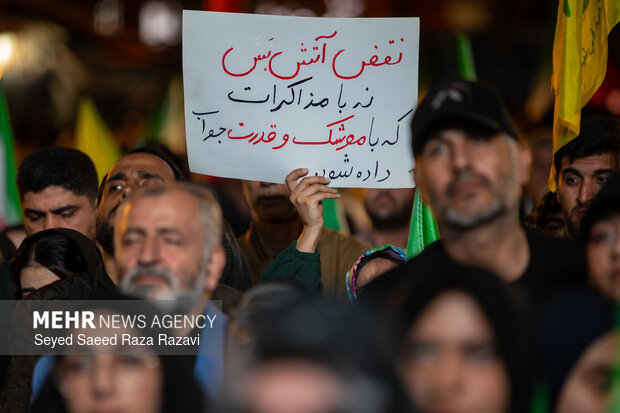 نقض آتش بس
نه با مذاکرات
که با موشک و قدرت جواب
داده شود
MEHR NEWS AGENCY
Seyed Saeed Raza Razavi